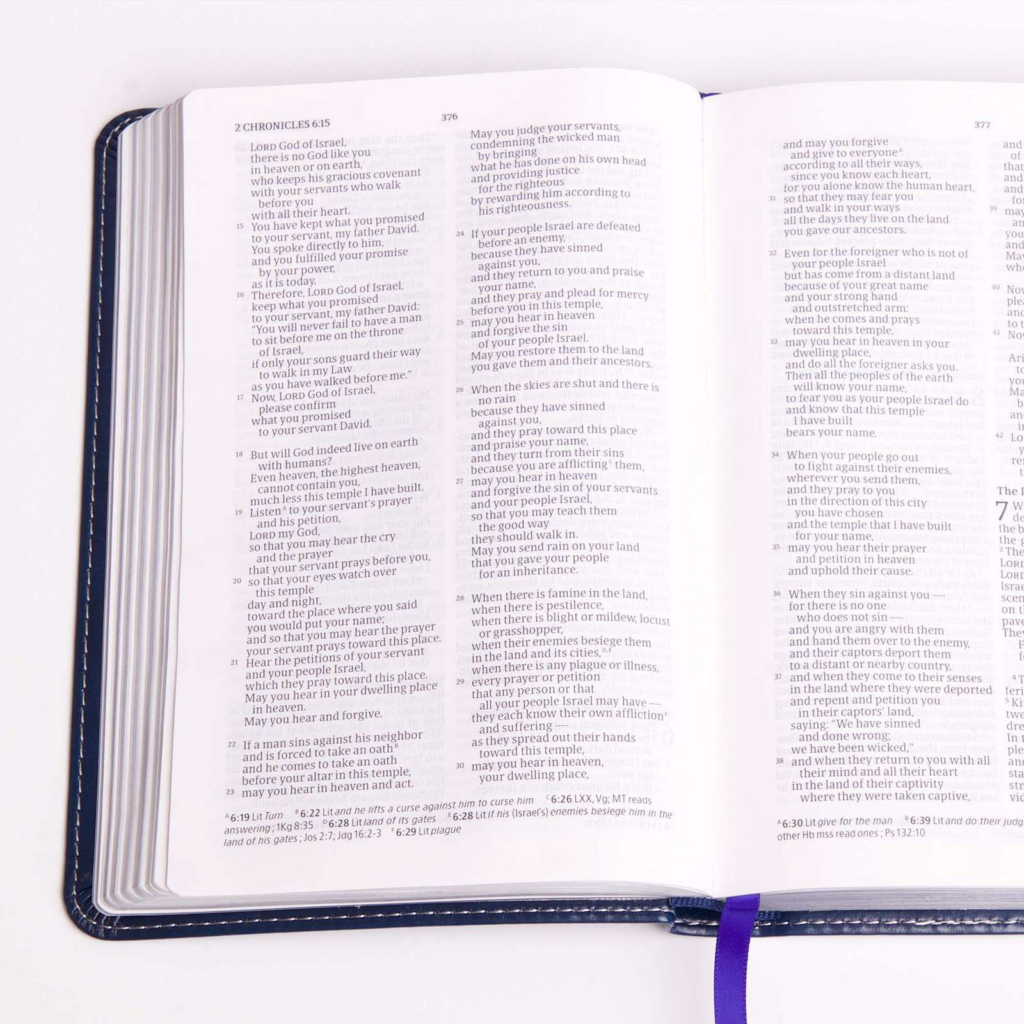 2 CHRONICLES 6:15
376
LORD God of Israel,
there is no God like you
in heaven or on earth,
who keeps his gracious covenant
with your servants who walk
before you
with all their heart.
15 You have kept what you promised
to your servant, my father David.
You spoke directly to him,
and you fulfilled your promise
by your power,
as it is today.
16 Therefore, LORD God of Israel,
keep what you promised
to your servant, my father David:
“You will never fail to have a man
to sit before me on the throne
of Israel,
if only your sons guard their way
to walk in my Law
as you have walked before me.”
17 Now, LORD God of Israel,
please confirm
what you promised
to your servant David.
18 But will God indeed live on earth
with humans?
Even heaven, the highest heaven,
cannot contain you,
much less this temple I have built.
19 Listen^A to your servant's prayer
and his petition,
LORD my God,
so that you may hear the cry
and the prayer
that your servant prays before you,
20 so that your eyes watch over
this temple
day and night,
toward the place where you said
you would put your name;
and so that you may hear the prayer
your servant prays toward this place.
21 Hear the petitions of your servant
and your people Israel,
which they pray toward this place.
May you hear in your dwelling place
in heaven.
May you hear and forgive.
22 If a man sins against his neighbor
and is forced to take an oath^B
and he comes to take an oath
before your altar in this temple,
23 may you hear in heaven and act.
May you judge your servants,
condemning the wicked man
by bringing
what he has done on his own head
and providing justice
for the righteous
by rewarding him according to
his righteousness.
24 If your people Israel are defeated
before an enemy,
because they have sinned
against you,
and they return to you and praise
your name,
and they pray and plead for mercy
before you in this temple,
25 may you hear in heaven
and forgive the sin
of your people Israel.
May you restore them to the land
you gave them and their ancestors.
26 When the skies are shut and there is
no rain
because they have sinned
against you,
and they pray toward this place
and praise your name,
and they turn from their sins
because you are afflicting^C them,
27 may you hear in heaven
and forgive the sin of your servants
and your people Israel,
so that you may teach them
the good way
they should walk in.
May you send rain on your land
that you gave your people
for an inheritance.
28 When there is famine in the land,
when there is pestilence,
when there is blight or mildew, locust
or grasshopper,
when their enemies besiege them
in the land and its cities,^D,E
when there is any plague or illness,
29 every prayer or petition
that any person or that
all your people Israel may have —
they each know their own affliction^F
and suffering —
as they spread out their hands
toward this temple,
30 may you hear in heaven,
your dwelling place,
^A 6:19 Lit Turn ^B 6:22 Lit and he lifts a curse against him to curse him ^C 6:26 LXX, Vg; MT reads
answering; 1Kg 8:35 ^D 6:28 Lit land of its gates ^E 6:28 Lit if his (Israel's) enemies besiege him in the
land of his gates; Jos 2:7; Jdg 16:2-3 ^F 6:29 Lit plague
377
and may you forgive
and give to everyone^A
according to all their ways,
since you know each heart,
for you alone know the human heart,
31 so that they may fear you
and walk in your ways
all the days they live on the land
you gave our ancestors.
32 Even for the foreigner who is not of
your people Israel
but has come from a distant land
because of your great name
and your strong hand
and outstretched arm:
when he comes and prays
toward this temple,
33 may you hear in heaven in your
dwelling place,
and do all the foreigner asks you.
Then all the peoples of the earth
will know your name,
to fear you as your people Israel do
and know that this temple
I have built
bears your name.
34 When your people go out
to fight against their enemies,
wherever you send them,
and they pray to you
in the direction of this city
you have chosen
and the temple that I have built
for your name,
35 may you hear their prayer
and petition in heaven
and uphold their cause.
36 When they sin against you —
for there is no one
who does not sin —
and you are angry with them
and hand them over to the enemy,
and their captors deport them
to a distant or nearby country,
37 and when they come to their senses
in the land where they were deported
and repent and petition you
in their captors' land,
saying: “We have sinned
and done wrong;
we have been wicked,”
38 and when they return to you with all
their mind and all their heart
in the land of their captivity
where they were taken captive,
^A 6:30 Lit give for the man ^B 6:39 Lit and do their judg
other Hb mss read ones; Ps 132:10
and
of
that
and
and
for
39 may
an
you
and
May
who
40 Now
plea
and
to t
41 Now
Ari
to
you
Ma
b
an
in
42 Lo
y
re
t
The
7 W
de
the b
the g
2 The
LORD
LORD
Israe
scen
on t
pave
They
F
f
4 T
feri
5 Ki
two
dre
In
ple
and
sta
str
vid